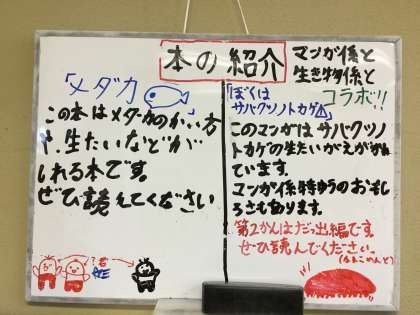 本の紹介
マンガ係と
生き物係と
コラボ!!
「メダカ
この本はメダカのかい方
や、生たいなどが
しれる本です。
ぜひ読んでください
「ぼくは
サバクツノトカゲ
このマンガは サバクツノ
トカゲの生たいがえがかれ
ています。
マンガ係特ゆうのおもし
ろさもあります。
第2かんはだっ出編です。
ぜひ読んでください。